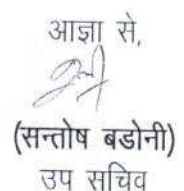 आज्ञा से,
(सन्तोष बडोनी)
उप सचिव